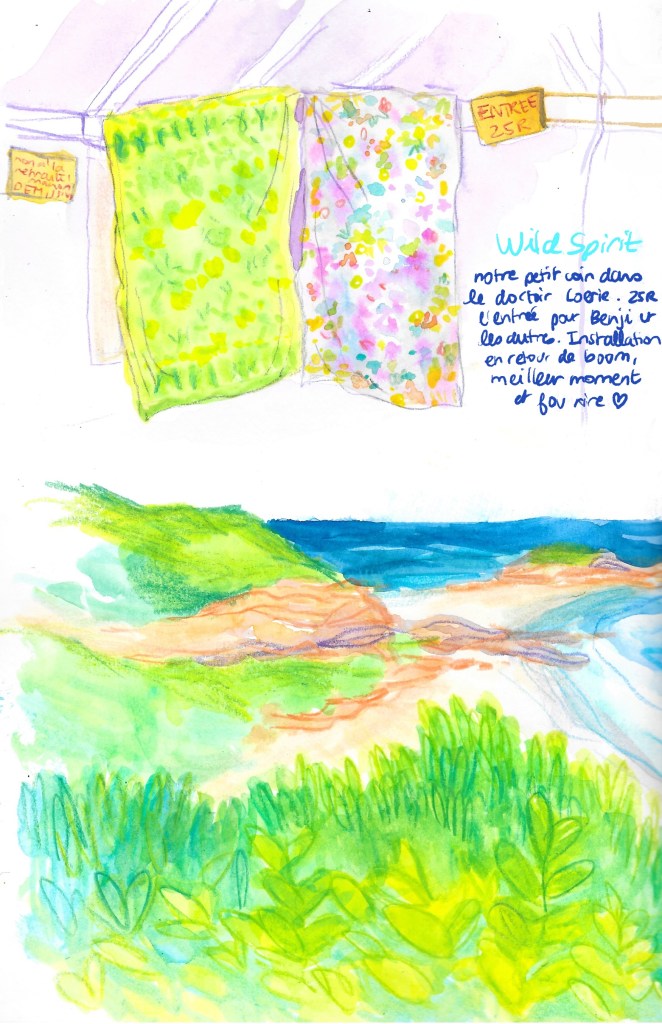 ENTREE
25R
non à la
retraite!
Wild Spirit
notre petit coin dans
le dortoir Loerie. 25R
l'entrée pour Benji et
les autres. Installation
en retour de boom,
meilleur moment
et fou rire ♡